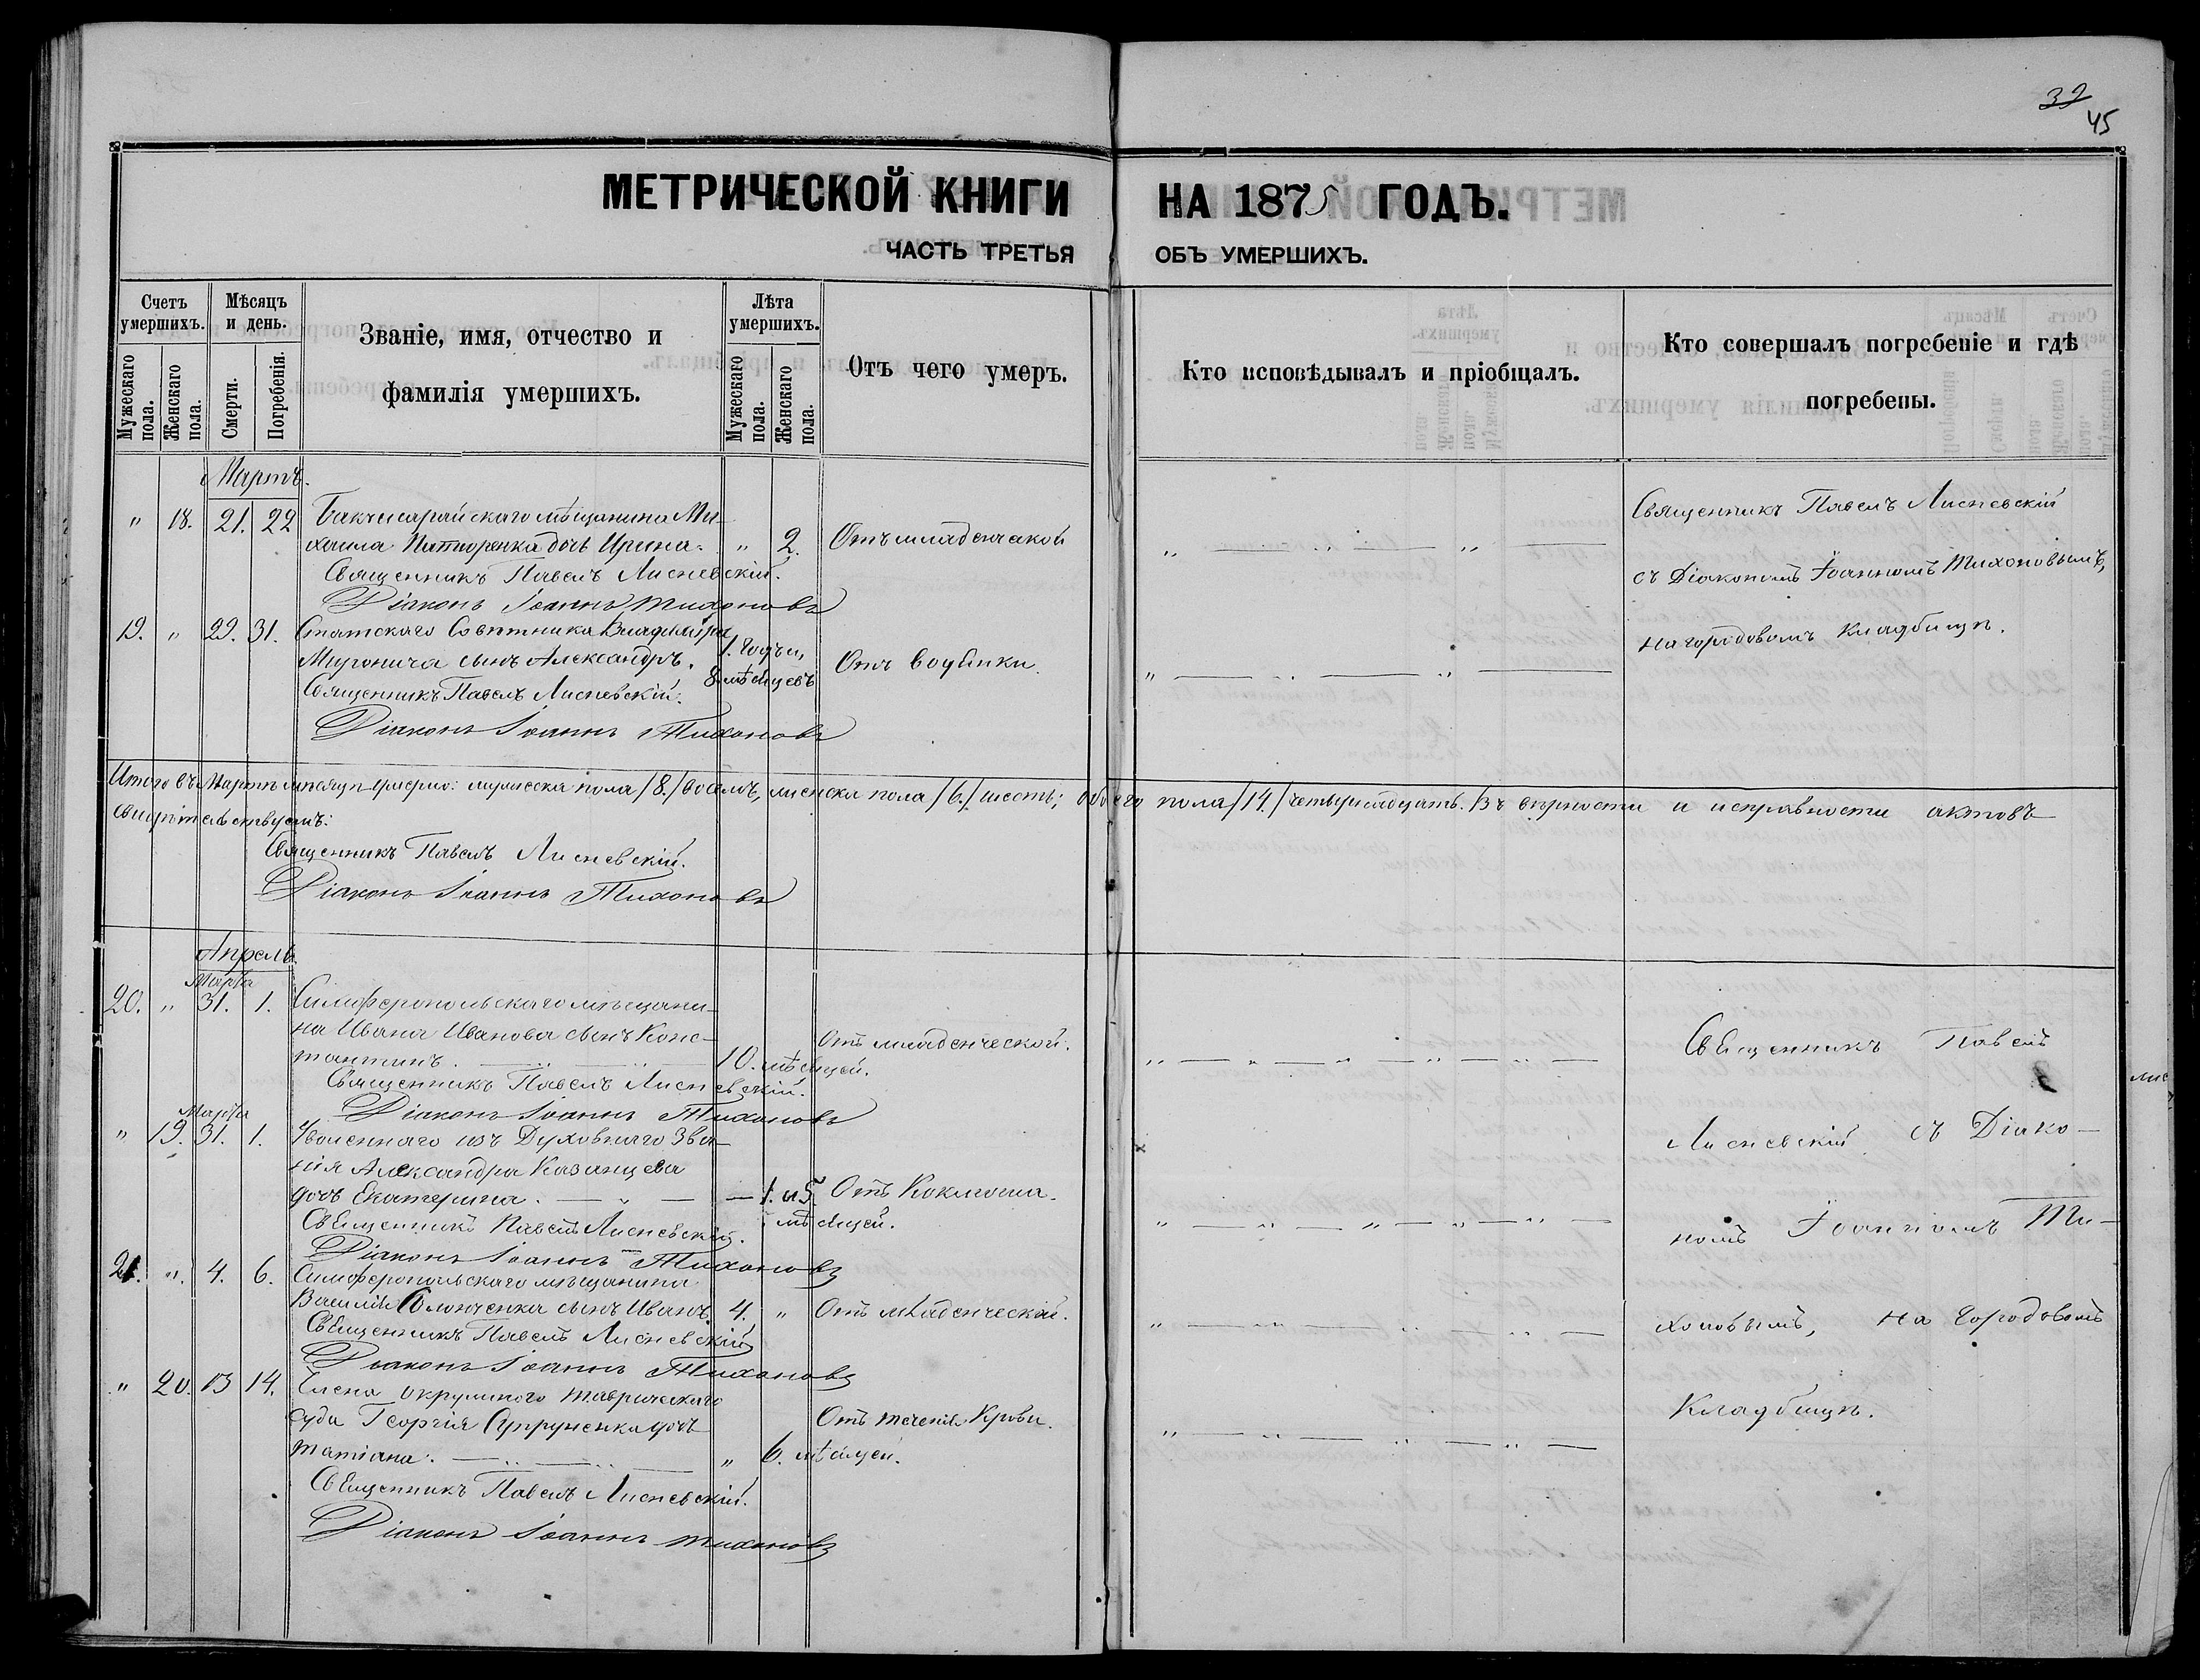 32
45
МЕТРИЧЕСКОЙ КНИГИ НА 1875 ГОДЪ.
ЧАСТЬ ТРЕТЬЯ ОБЪ УМЕРШИХЪ.
Счетъ умершихъ.
Мужескаго пола.
Женскаго пола.
Мѣсяцъ и день.
Смерти.
Погребенія.
Званіе, имя, отчество и
фамилія умершихъ.
Лѣта умершихъ.
Мужескаго пола.
Женскаго пола.
Отъ чего умеръ.
Кто исповѣдывалъ и пріобщалъ.
Кто совершалъ погребеніе и гдѣ
погребены.
Мартъ.
" 18. 21. 22 Бакчисарайскаго мѣщанина Ми-
хаила дочь Ирина. " 2. Отъ младенчакой
Священникъ Павелъ Лисневскій.
Діаконъ Іоаннъ Тихоновъ
Священникъ Павелъ Лисневскій
съ Діакономъ Іоанномъ Тихоновымъ,
на городовомъ кладбищѣ.
19. " 29. 31. Статскаго Совѣтника Владиміра
сынъ Александръ. 1. годъ и
8. мѣсяцевъ Отъ водянки.
Священникъ Павелъ Лисневскій.
Діаконъ Іоаннъ Тихоновъ
Итого въ Мартѣ мѣсяцѣ умерло: мужеска пола /8./ восемь, женска пола /6./ шесть; обоего пола /14./ четырнадцать. Въ вѣрности и исправности актовъ
свидѣтельствуемъ:
Священникъ Павелъ Лисневскій.
Діаконъ Іоаннъ Тихоновъ
Апрель.
Марта
20. " 31. 1. Симферопольскаго мѣщани-
на Ивана Иванова сынъ Конс-
тантинъ. 10. мѣсяцей. Отъ младенческой.
Священникъ Павелъ Лисневскій.
Діаконъ Іоаннъ Тихоновъ
Марта
" 19. 31. 1. Уволеннаго изъ Духовнаго Зва-
нія Александра Казанцева
дочь Екатерина. 1. и 5 мѣсяцей. Отъ Коклюша.
Священникъ Павелъ Лисневскій.
Діаконъ Іоаннъ Тихоновъ
21. " 4. 6. Симферопольскаго мѣщанина
Василія сынъ Иванъ. 4. " Отъ младенческой.
Священникъ Павелъ Лисневскій
Діаконъ Іоаннъ Тихоновъ
" 20. 13 14. окружного таврическаго
суда Георгія Супруненка дочь
татіана. " 6. мѣсяцей. Отъ теченія Крови.
Священникъ Павелъ Лисневскій.
Діаконъ Іоаннъ тихоновъ
Священникъ Павелъ
Лисневскій съ Діако-
номъ Іоанномъ Ти-
хоновымъ, на Городовомъ
Кладбищѣ.